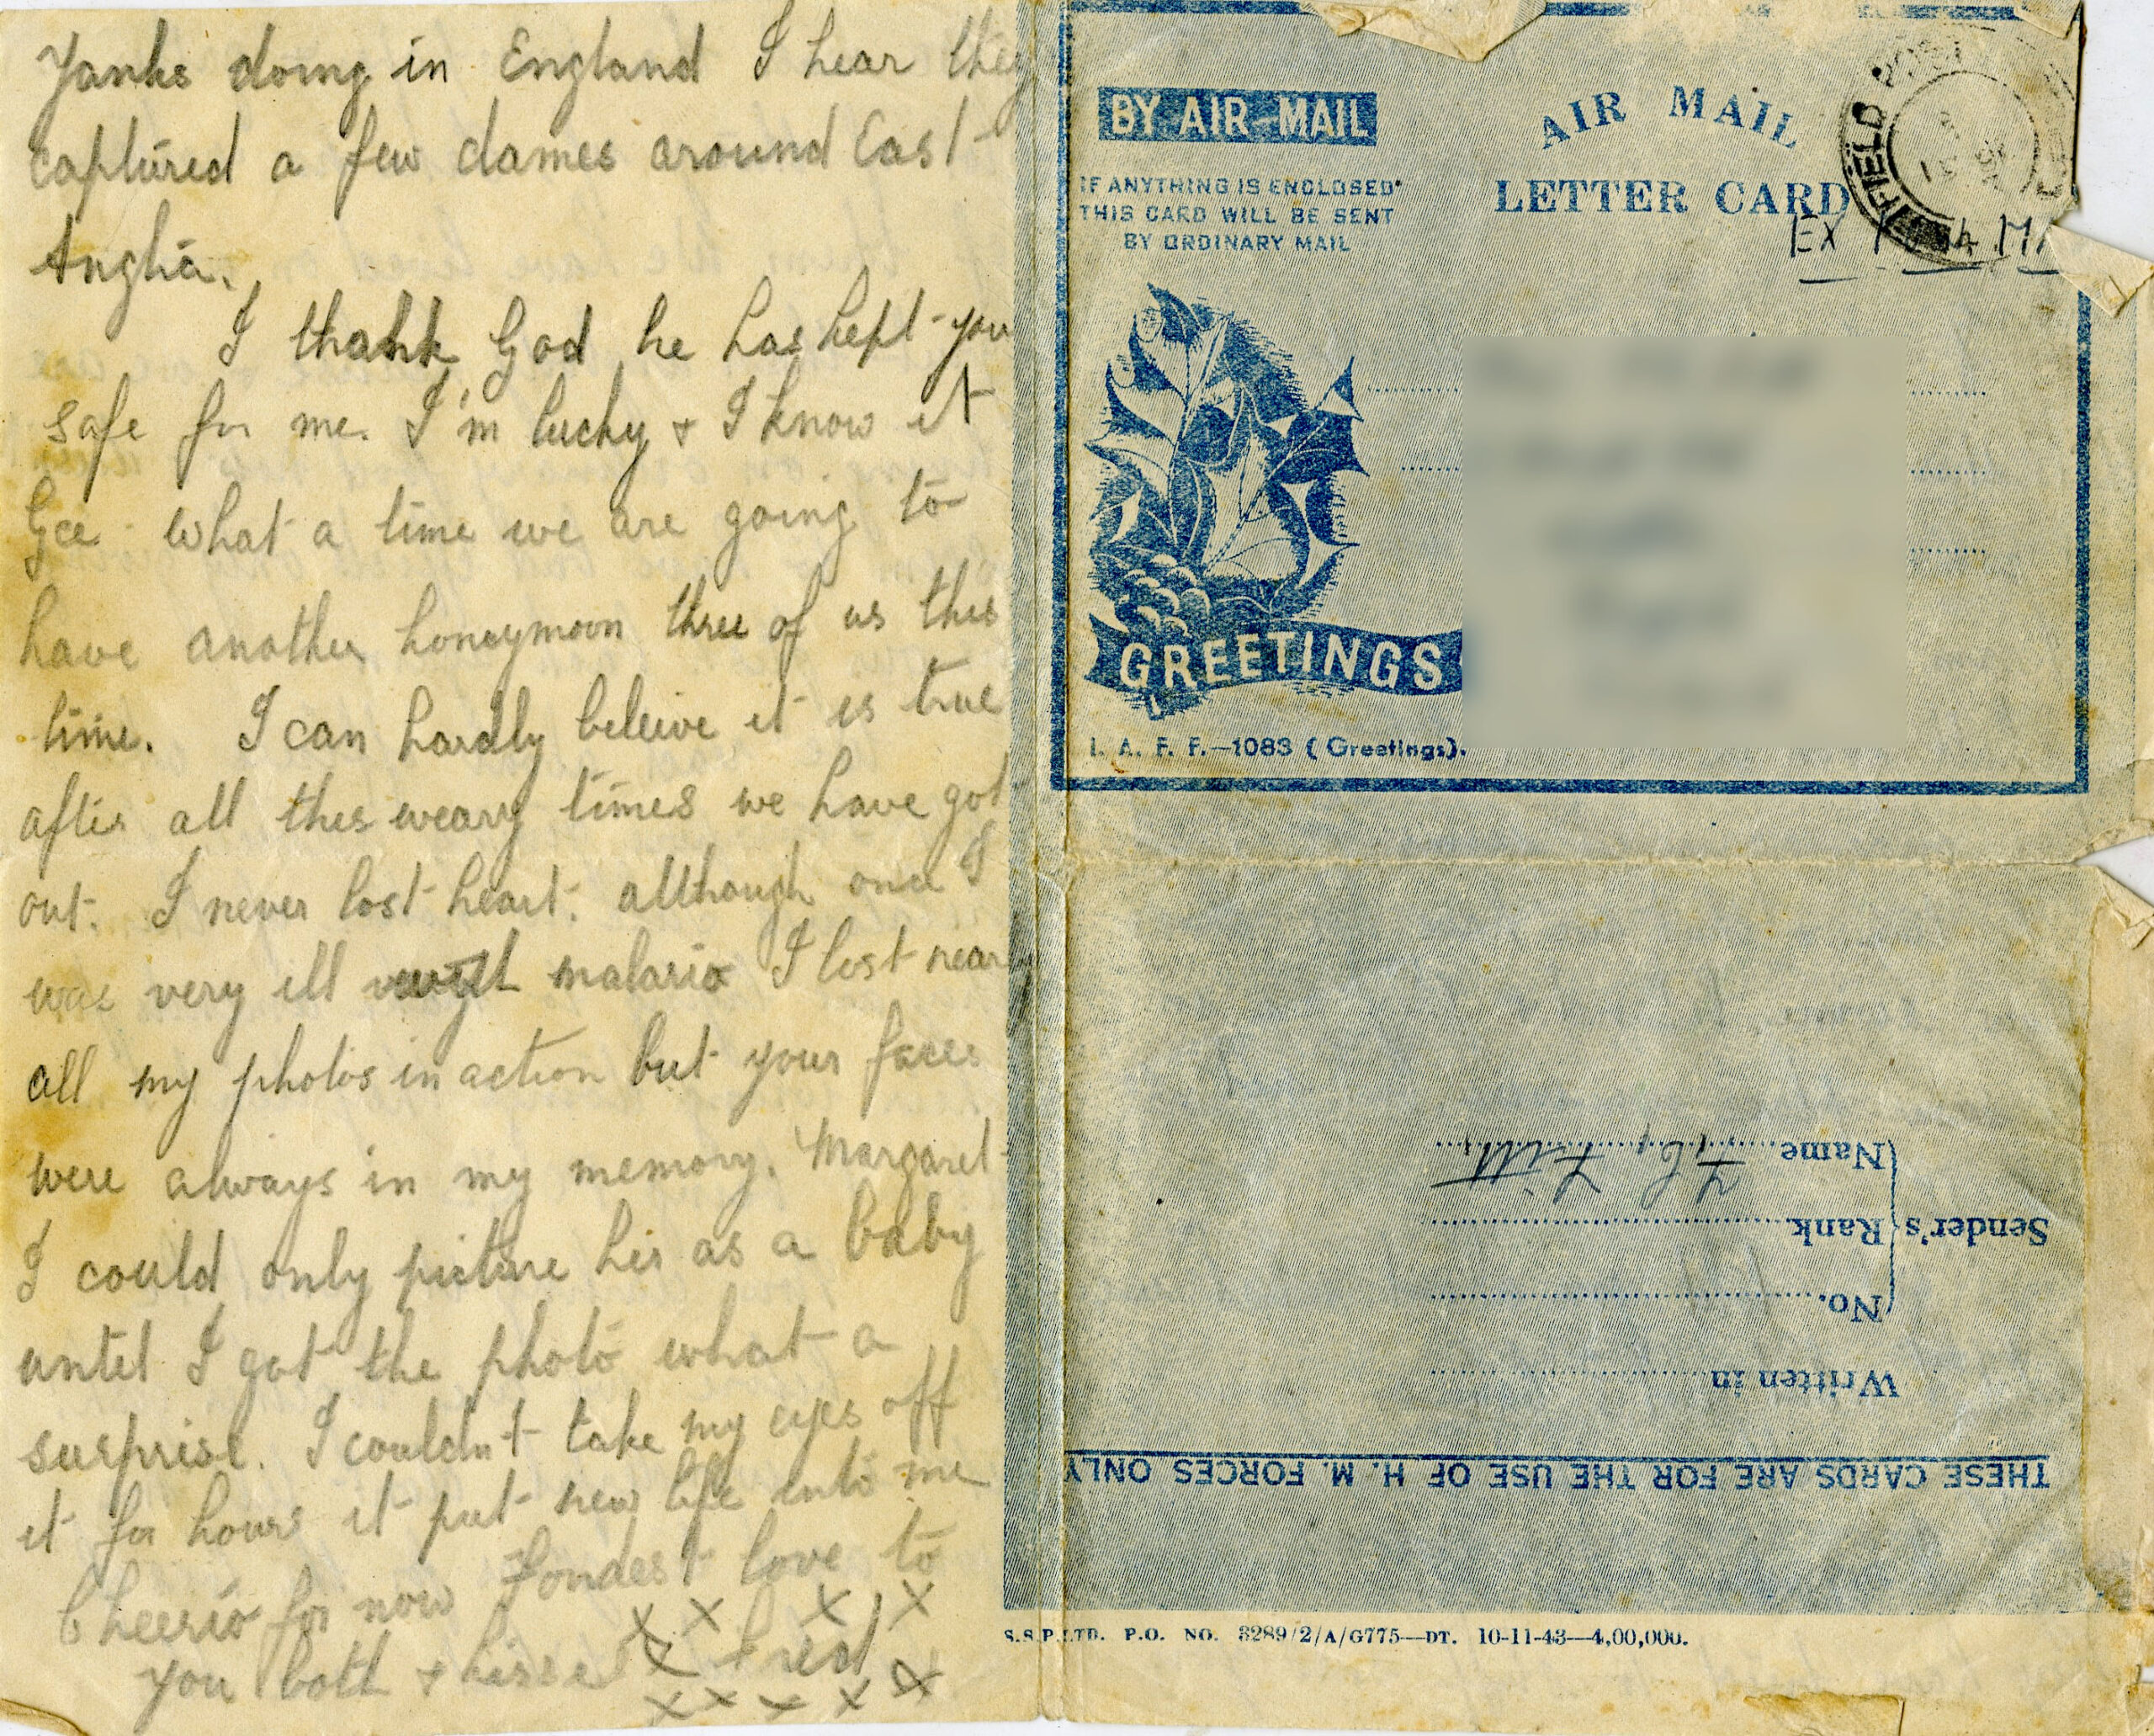 Yanks doing in England I hear they
captured a few dames around East
Anglia.
I thank God he has kept you
safe for me. I'm lucky + I know it
Gee what a time we are going to
have another honeymoon three of us this
time. I can hardly beleive it is true
after all this weary times we have got
out. I never lost heart. allthough once I
was very ill with malaria I lost nearly
all my photos in action but your faces
were always in my memory. Margaret
I could only picture her as a baby
until I got the photo what a
surprise. I couldn't take my eyes off
it for hours it put new life into me
Cheerio for now Fondest love to
x x x x
you both + kisses Fred
x x x x x
BY AIR MAIL
IF ANYTHING IS ENCLOSED
THIS CARD WILL BE SENT
BY ORDINARY MAIL
AIR MAIL
LETTER CARD
FIELD POST
EX
GREETINGS
I. A. F. F.—1083 (Greetings).
Name
Sender's Rank
No.
Written in
THESE CARDS ARE FOR THE USE OF H. M. FORCES ONLY
S.S.P.LTD. P.O. NO. 3289/2/A/G775—DT. 10-11-43—4,00,000.